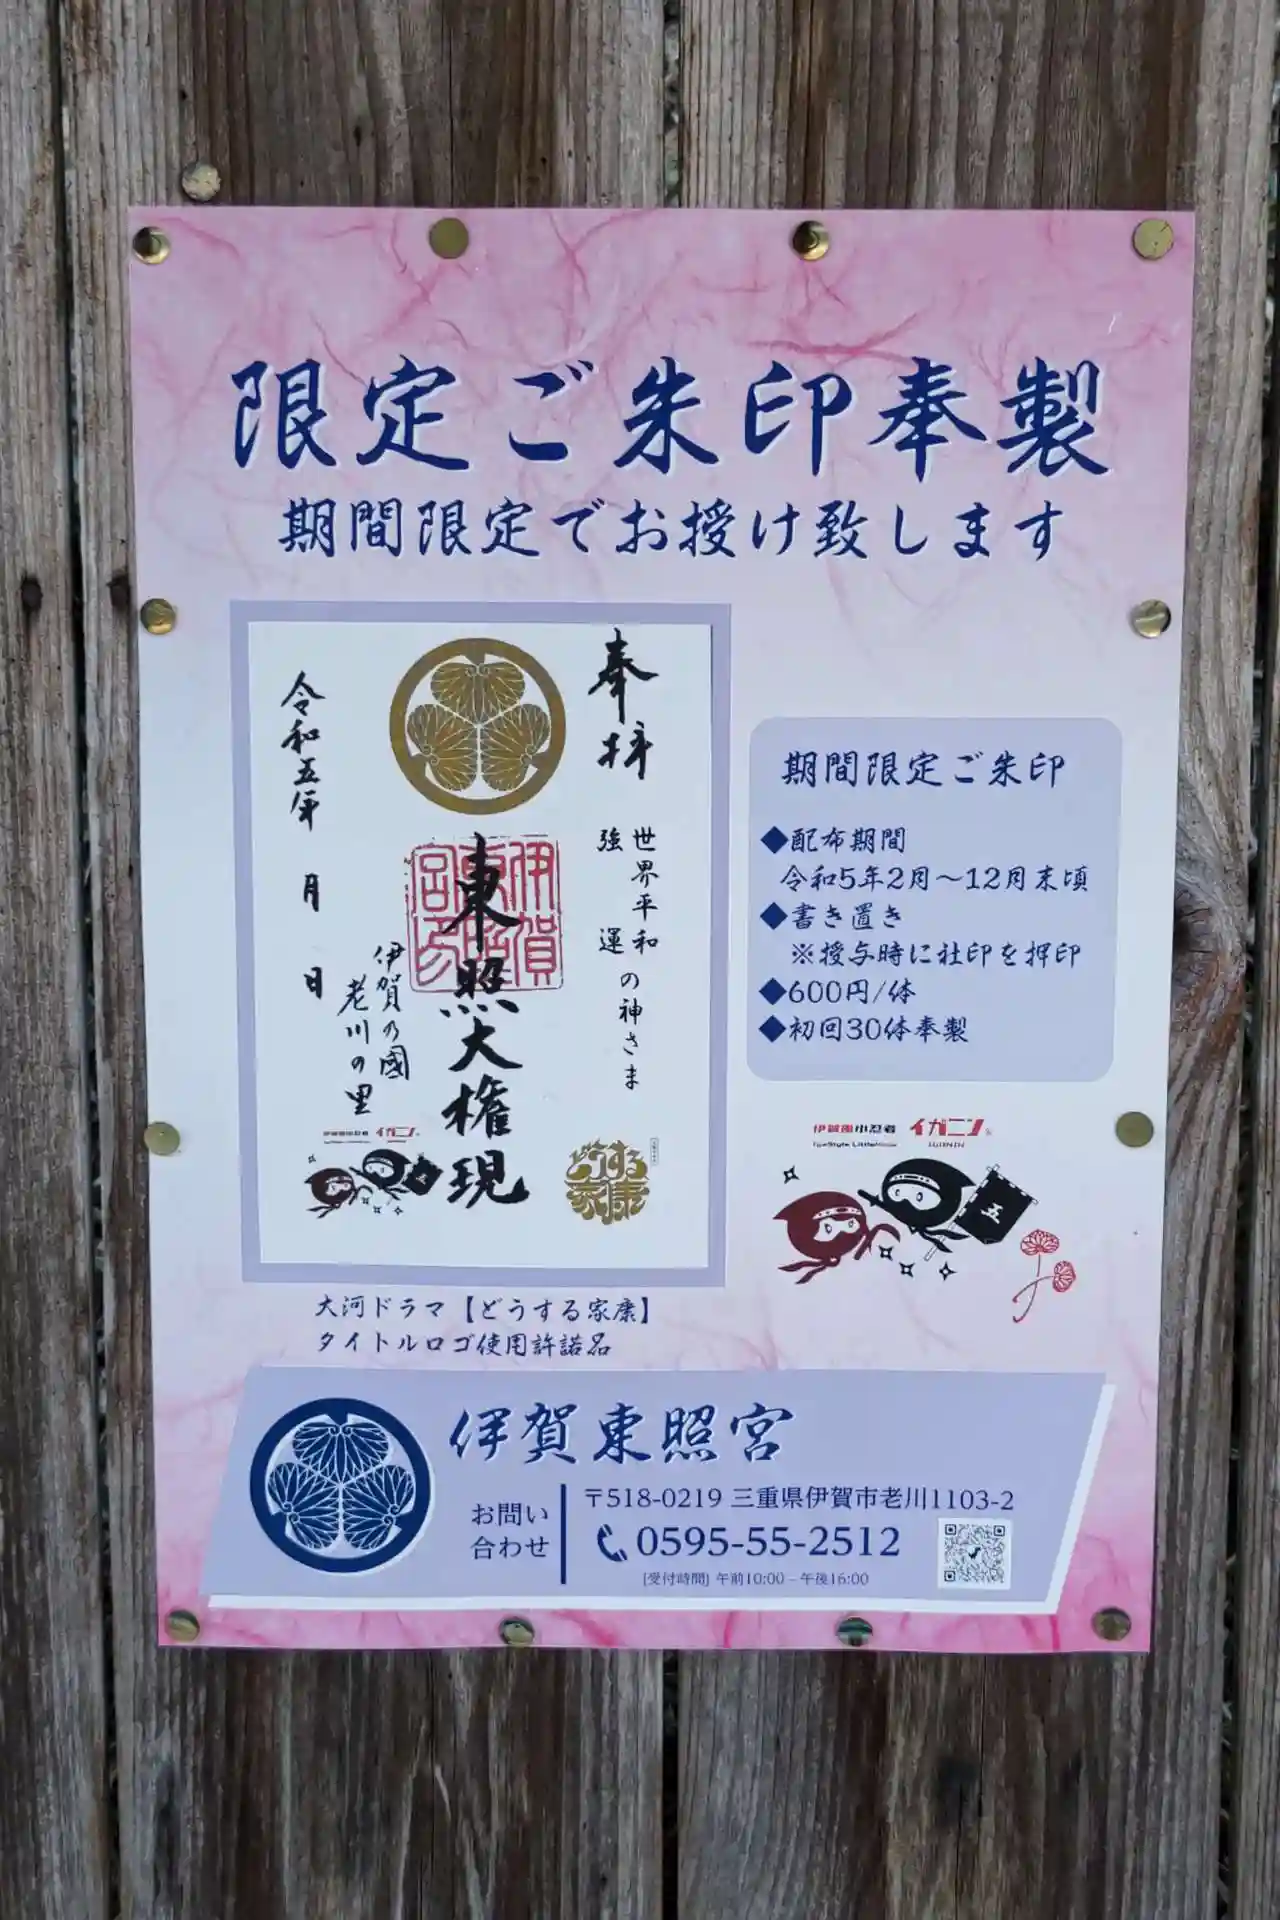 限定ご朱印奉製
期間限定でお授け致します
奉拝
世界平和
強運
の神さま
伊賀東照宮
東照大権現
伊賀の國
老川の里
令和五年 月 日
伊賀風小忍者 イガニン
どうする家康
大河ドラマ【どうする家康】
タイトルロゴ使用許諾品
期間限定ご朱印
◆配布期間
令和5年2月～12月末頃
◆書き置き
※授与時に社印を押印
◆600円/体
◆初回30体奉製
イガニン
IGANIN
五
伊賀東照宮
お問い
合わせ
〒518-0219 三重県伊賀市老川1103-2
0595-55-2512
[受付時間] 午前10:00 – 午後16:00